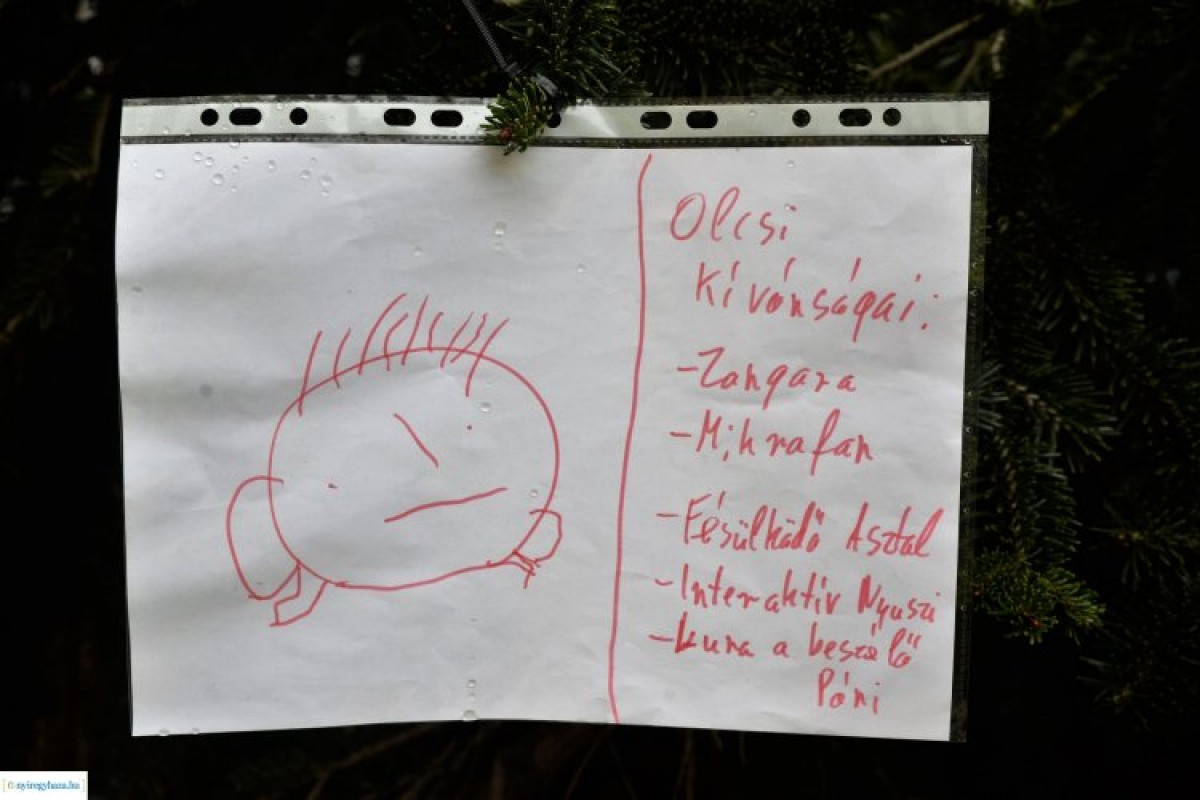 Olcsi
Kívánságai:
- Zongora
- Mikrofon
- Fésülködő Asztal
- Interaktív Nyuszi
- Kuna a beszélő
Póni
© nyiregyhaza.hu